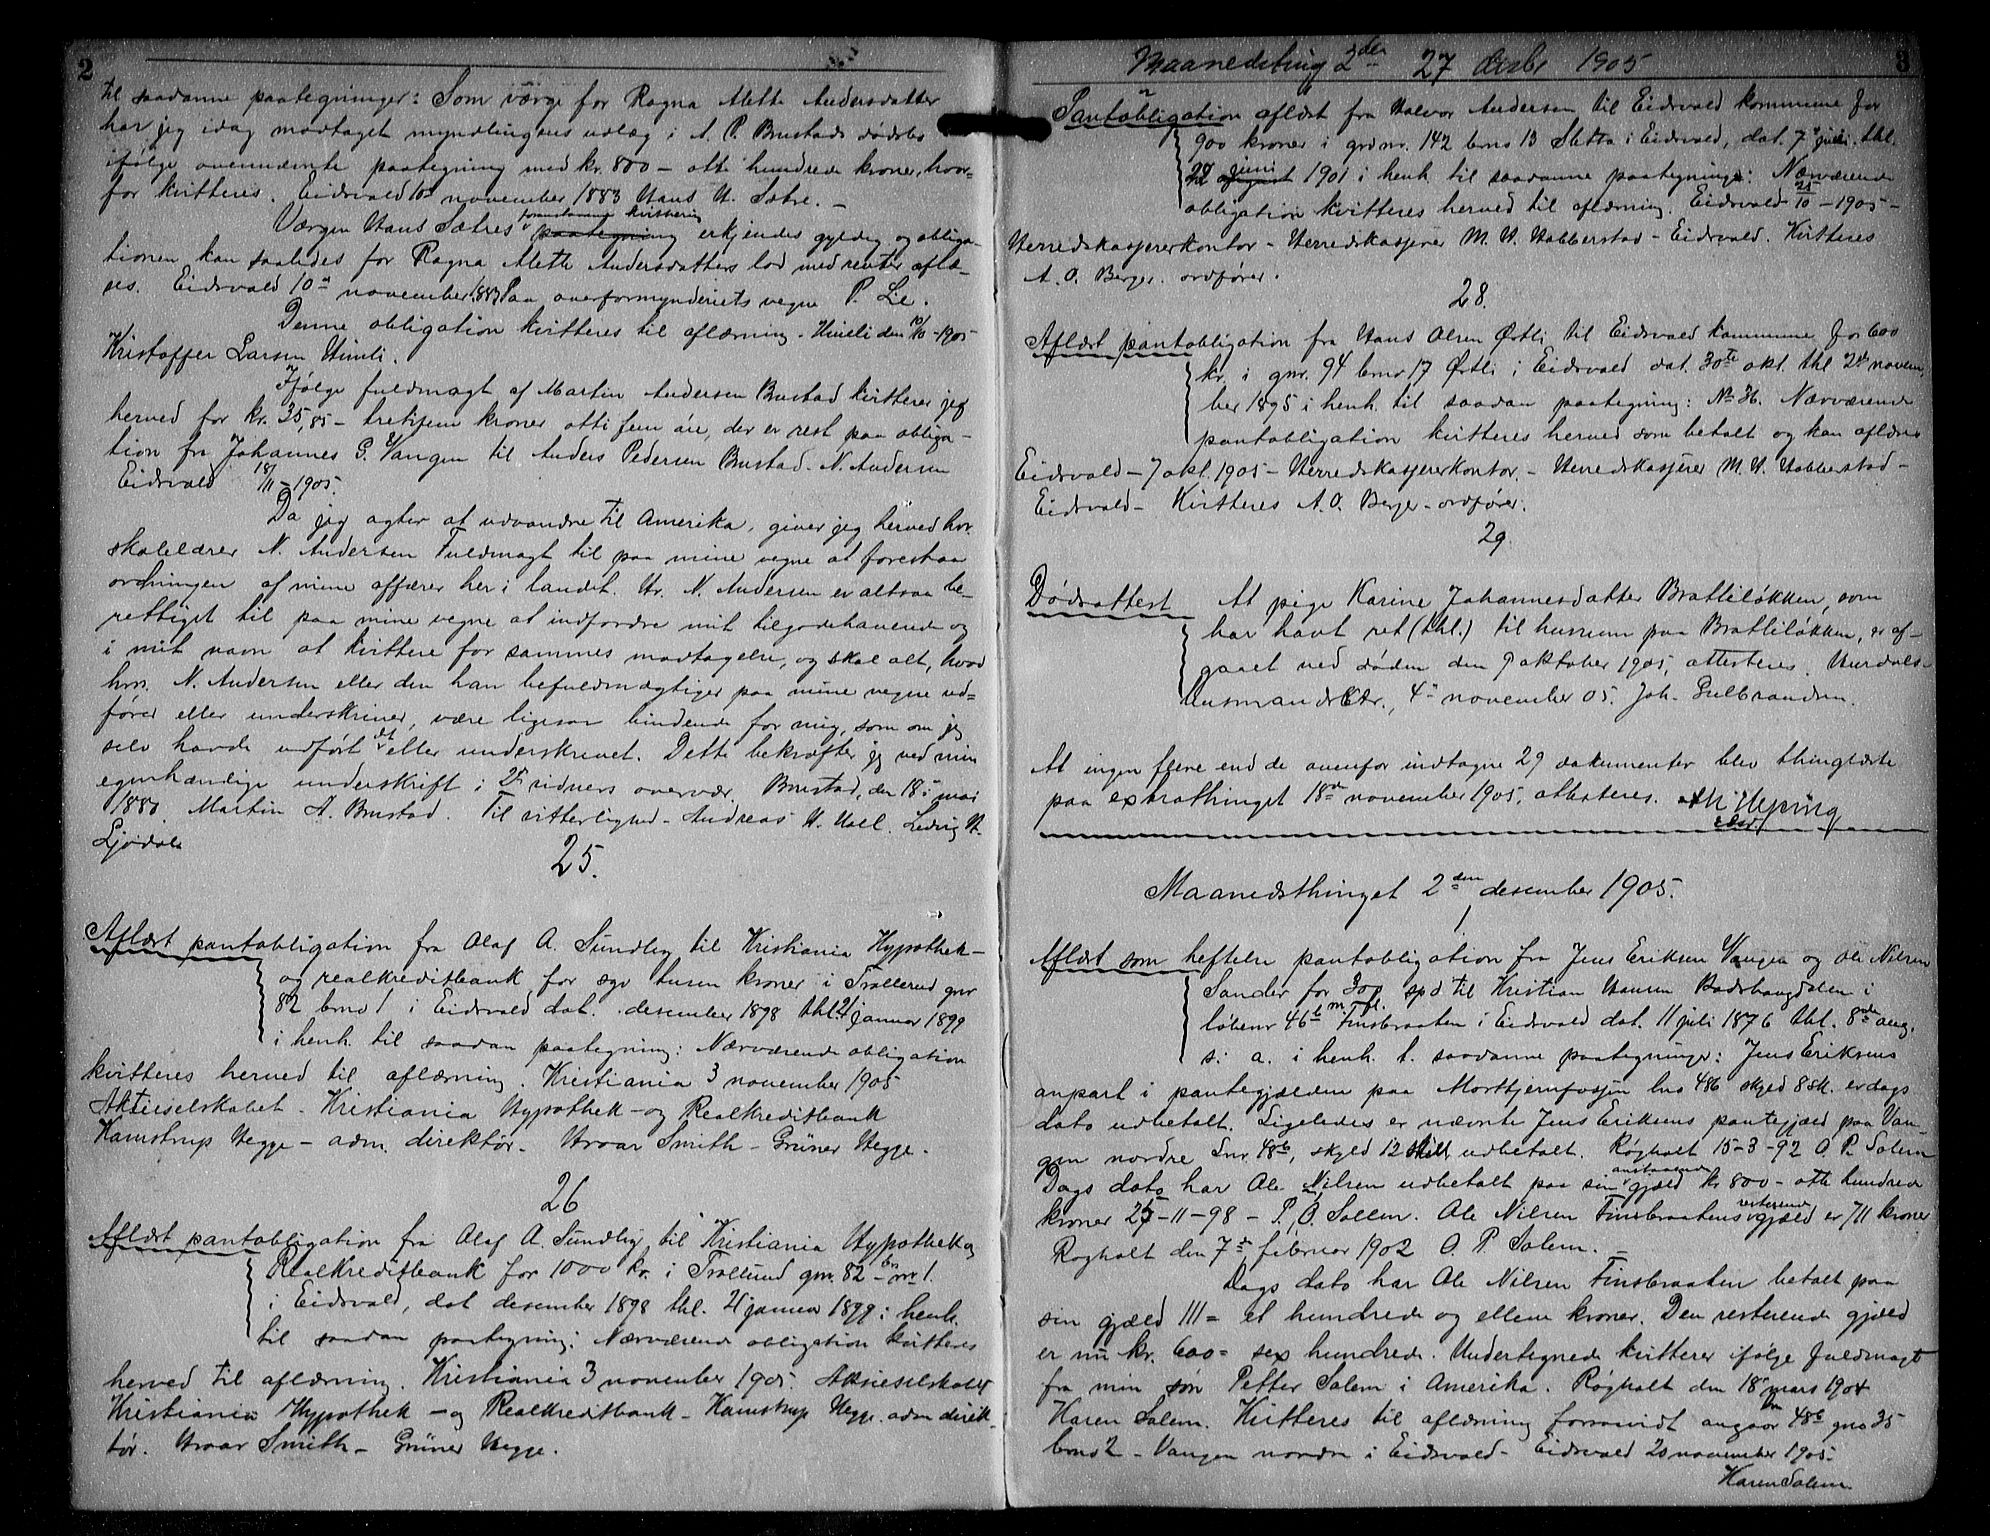 2
til saadanne paategninger: Som værge for Ragna Alette Andersdatter
har jeg idag modtaget myndlingens udlæg i A. P. Brustads dødsbo
ifølge ovennævnte paategning med kr. 800 – otte hundrede kroner, hvor-
for kvitteres. Eidsvald 10 november 1883 Hans H. Sætre. –
Værgen Hans Sætres foranstaaende kvittering paategning erkjendes gyldig og obliga-
tionen kan saaledes for Ragna Alette Andersdatters lod med renter aflæ-
ses. Eidsvald 10 november 1883 Paa overformynderiets vegne P. Lie.
Denne obligation kvitteres til aflæsning. Himli den 10/11-1905
Kristoffer Larsen Himli.
Ifølge fuldmagt af Martin Andersen Brustad kvitterer jeg
herved for kr. 35,85 – trettifem kroner otti fem øre, der er rest paa obliga-
tion fra Johannes G. Vangen til Anders Pedersen Brustad. N. Andersen
Eidsvald 18/11-1905.
Da jeg agter at udvandre til Amerika, giver jeg herved hr.
skolelærer N. Andersen Fuldmagt til paa mine vegne at forestaa
ordningen af mine affærer her i landet. Hr. N. Andersen er altsaa be-
rettiget til paa mine vegne at indfordre mit tilgodehavende og
i mit navn at kvittere for sammes modtagelse, og skal alt, hvad
hr. N. Andersen eller den han befuldmægtiger paa mine vegne ud-
fører eller underskriver, være ligesaa bindende for mig, som om jeg
selv havde udført det eller underskrevet. Dette bekræfter jeg ved min
egenhændige underskrift i 2 vidners overvær. Brustad, den 18 mai
188 . Martin A. Brustad. Til vitterlighed – Andreas H. Hall. Ludvig H.
Ljødal
25.
Aflæst pantobligation fra Olaf A. Sundby til Kristiania Hypothek-
og realkreditbank for syv tusen kroner i Trollerud gnr
82 bno 1 i Eidsvald dat. desember 1898 thl. 21 januar 1899
i henh. til saadan paategning: Nærværende obligation
kvitteres herved til aflæsning. Kristiania 3 november 1905
Aktieselskabet – Kristiania Hypothek – og Realkreditbank
Kamstrup Hegge – adm. direktør. Hroar Smith – Grüner Hegge.
26
Aflæst pantobligation fra Olaf A. Sundby til Kristiania Hypothek og
Realkreditbank for 1000 kr. i Trollerud gnr. 82 bnr 1.
i Eidsvald, dat desember 1898 thl. 21 januar 1899 i henh.
til saadan paategning: Nærværende obligation kvitteres
herved til aflæsning. Kristiania 3 november 1905. Aktieselskabet
Kristiania Hypothek – og Realkreditbank – Kamstrup Hegge. adm direk-
tør. Hroar Smith – Grüner Hegge.
Maanedsting 2den 27 desbr 1905
3
Pantobligation aflæst fra Halvor Andersen til Eidsvald kommune for
900 kroner i grdnr. 142 bno 13 Sletta i Eidsvald, dat. 7 juli. thl.
22 juni august 1901 i henh. til saadanne paategninge: Nærværende
obligation kvitteres herved til aflæsning. Eidsvald 25/10 – 1905 –
Herredskasjererkontor – Herredskasjerer M. H. Habberstad – Eidsvald. Kvitteres
A. O. Berger. ordfører.
28.
Aflæst pantobligation fra Hans Olsen Østli til Eidsvald kommune for 600
kr. i gnr. 94 bno 17 Østli i Eidsvald dat. 30te okt. thl 2den novem-
ber 1895 i henh. til saadan paategning: No 36. Nærværende
pantobligation kvitteres herved som betalt og kan aflæses
Eidsvald – 7 okt. 1905 – Herredskasjererkontor. – Herredskasjerer M. H. Habberstad –
Eidsvald – Kvitteres A. O. Berger – ordfører.
29.
Dødsattest At pige Karine Johannesdatter Bratliløkken, som
har havt ret (thl.) til husrum paa Bratliløkken, er af-
gaaet ved døden den 9 oktober 1905, attesteres. Hurdals
Lensmandsktr., 4 november 05. Joh. Gulbrandsen.
At ingen flere end de ovenfor indtagne 29 dokumenter blev thinglæste
paa extrathinget 18de november 1905, attesteres.
Maanedsthinget 2den desember 1905.
1
Aflæst som heftelse pantobligation fra Jens Eriksen Vangen og Ole Nilsen
Sander for spd til Kristian Hansen Badshaugdalen i
løbenr 46b m. fl. Finsbraaten i Eidsvald dat. 11 juli 1876 thl. 8de aug.
s. a. i henh. t. saadanne paategninge: Jens Eriksens
anpart i pantegjælden paa lno 486 skyld 8 sk. er dags
dato udbetalt. Ligeledes er nævnte Jens Eriksens pantegjæld paa Van-
gen nordre Lnr. 48b, skyld 12 skill udbetalt. Røgholt 15-3-92 O. P. Solem
Dags dato har Ole Nilsen udbetalt paa sin anstaaende gjæld kr 800 – otte hundrede
kroner 25-11-98 – P. O. Sollem. Ole Nilsen Finsbraatens resterende gjæld er 711 kroner
Rogholt den 7de februar 1902 O. P. Solem. –
Dags dato har Ole Nilsen Finsbraaten betalt paa
sin gjæld 111 = et hundrede og elleve kroner. Den resterende gjæld
er nu kr. 600 = sex hundrede. Undertegnede kvitterer ifølge fuldmagt
fra min søn Petter Solem i Amerika. Røgholt den 18 mars 1904
Karen Solem. Kvitteres til aflæsning forsaavidt angaar lnr 48b gno 35
bno 2 – Vangen nordre i Eidsvald – Eidsvald 20 november 1905.
Karen Solem